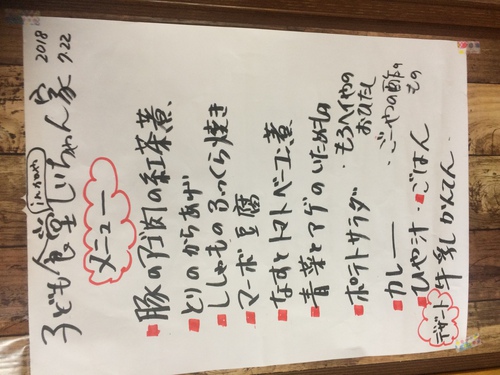 子ども食堂 じいちゃん家
2018
7.22
メニュー
豚のアゴ肉の紅茶煮
とりのからあげ
ししゃものふっくら焼き
マーボ豆腐
なすとトマトベーコン煮
青菜とアゲのいためもの
ポテトサラダ
・もろヘイヤのおひたし
カレー
・ごーやの酢のもの
ひや汁
・ごはん
デザート
牛乳かんてん